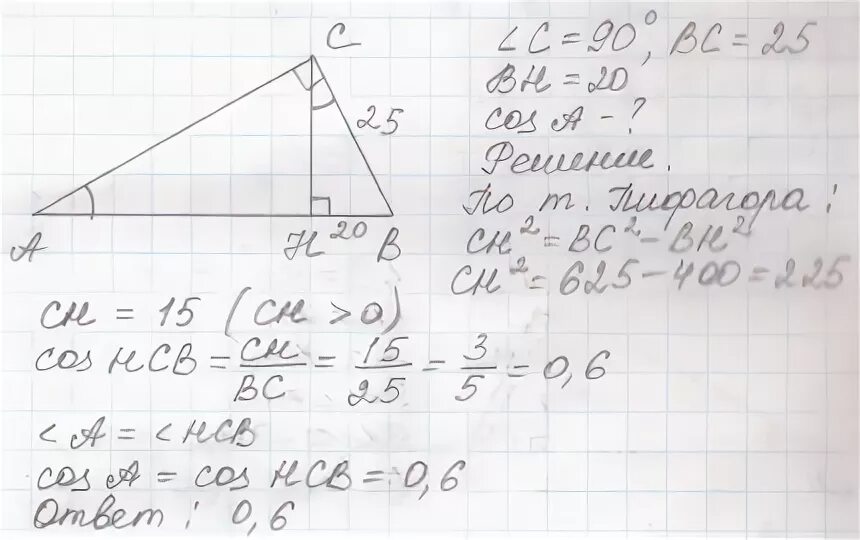 C
25
A
H
20
B
∠C = 90°, BC = 25
BH = 20
cos A - ?
Решение.
По т. Пифагора:
CH² = BC² - BH²
CH² = 625 - 400 = 225
CH = 15 (CH > 0)
cos HCB = CH/BC = 15/25 = 3/5 = 0,6
∠A = ∠HCB
cos A = cos HCB = 0,6
Ответ: 0,6